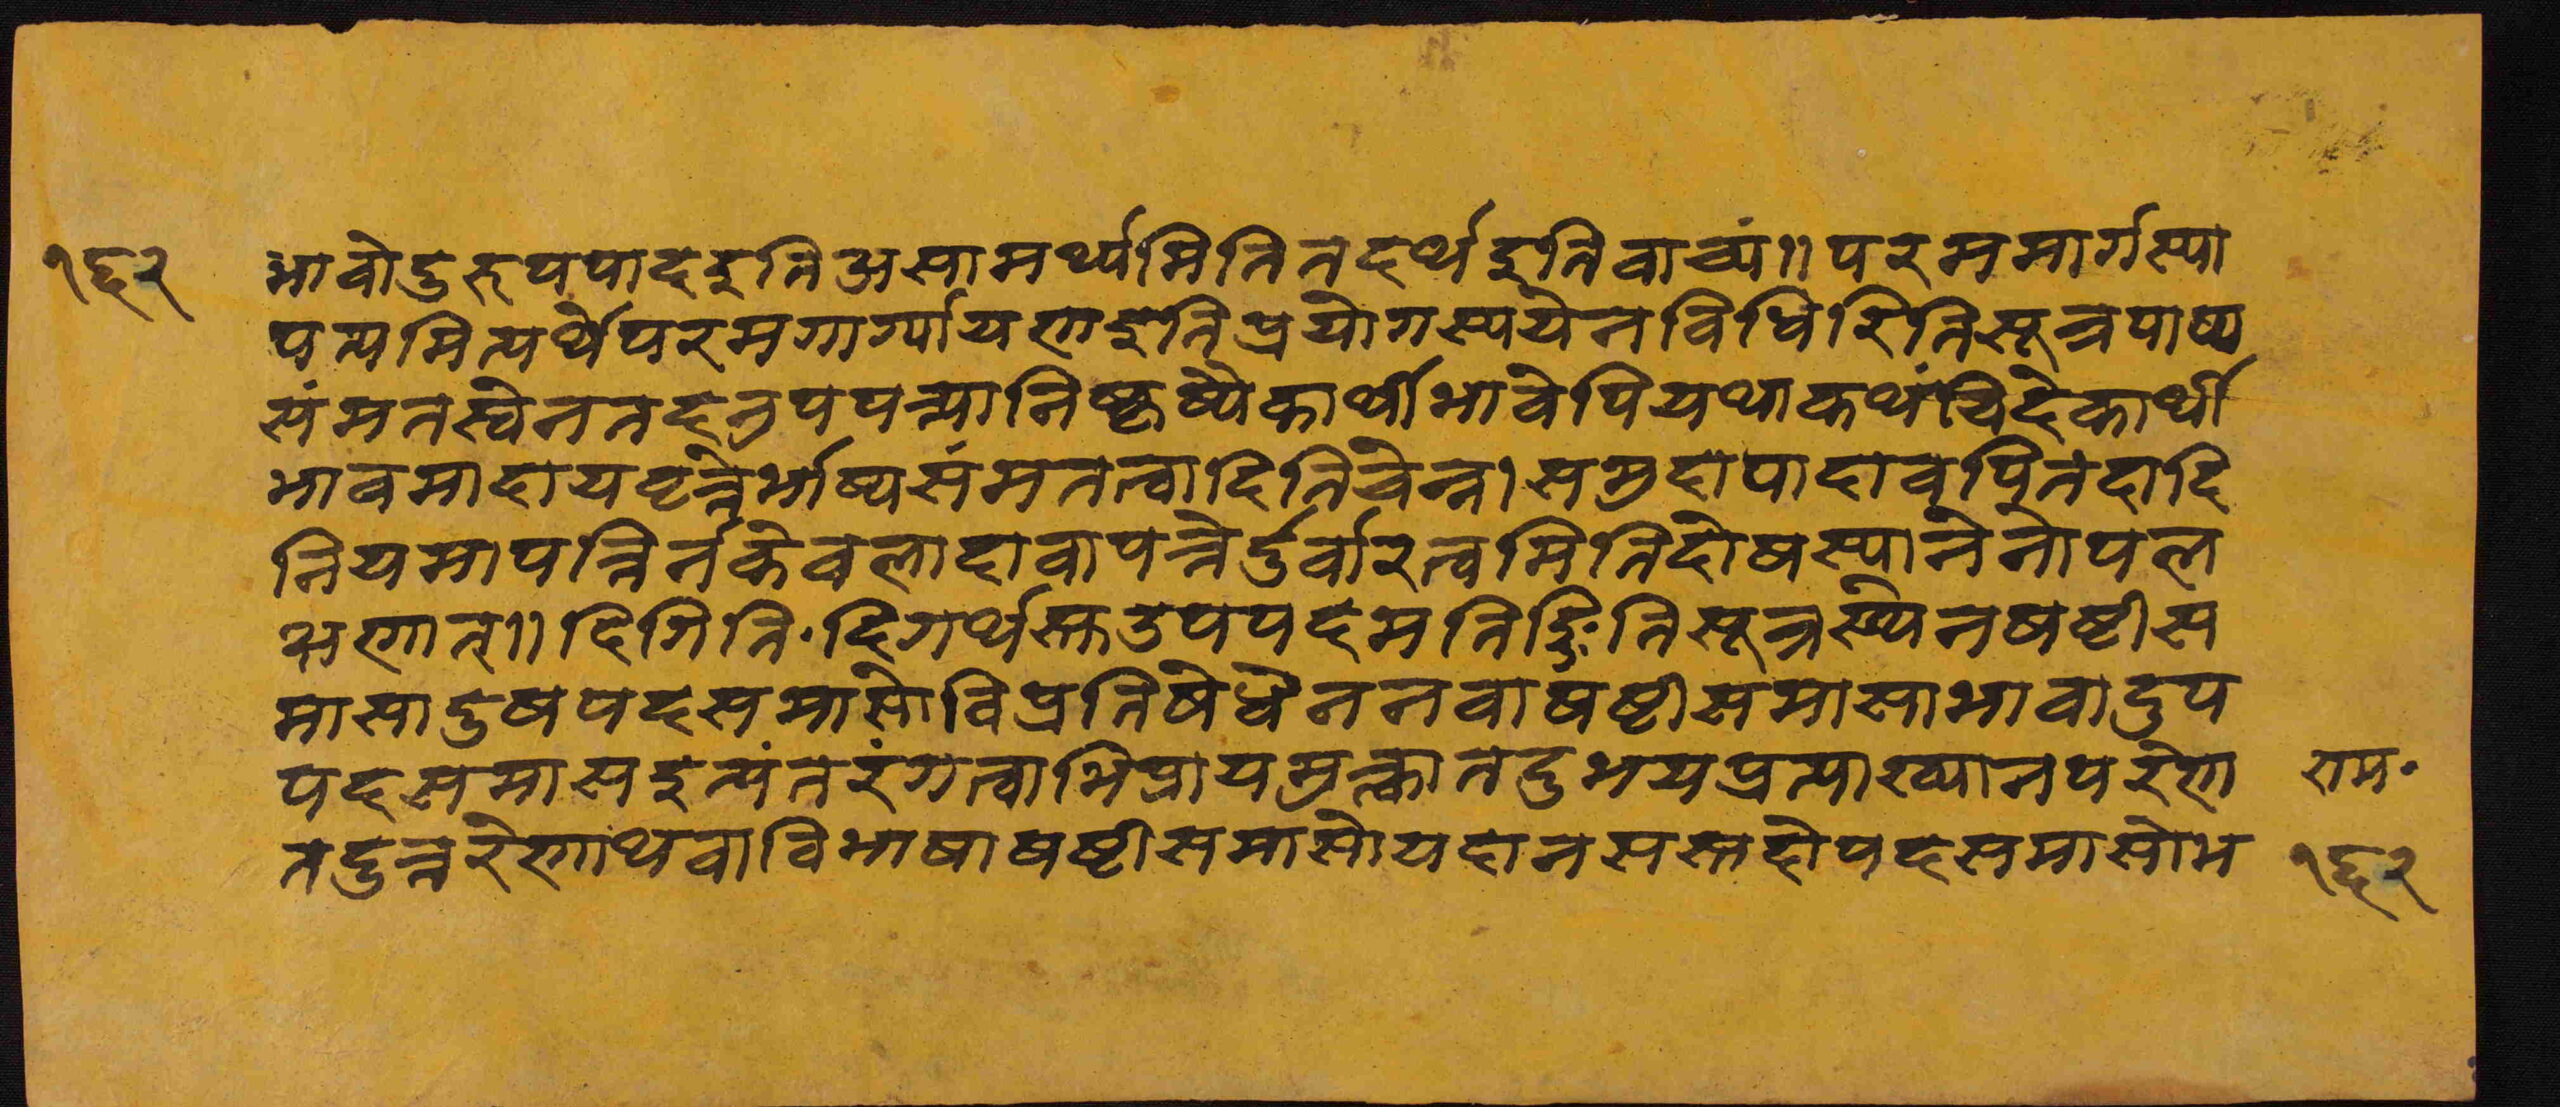 १६२ भावोदुरुपपादइतिअसामर्थ्यमितितदर्थइतिवाच्यं॥परममार्गस्या
पत्यमित्यर्थेपरमगार्ग्यायणइतिप्रयोगस्ययेनविधिरितिसूत्रपाष्य
संमतस्वेनतदनुपपत्यानिष्कृष्यैकार्थीभावेपियथाकथंचिदेकार्थी
भावमादायवृत्तेर्भाष्यसंमतत्वादितिचेन्न।समुदापादावपितदादि
नियमापत्तिर्नकेवलादावापत्तेर्दुर्वारत्वमितिदोषस्यानेनोपल
क्षणात्॥दिगिति·दिगर्थस्तउपपदमतिङितिसूत्रस्थेनषष्टीस
मासादुषपदसमासोविप्रतिषेधेननवाषष्टीसमासाभावादुप
पदसमासइत्यंतरंगत्वाभिप्रायमुत्कातदुभयप्रत्याख्यानपरेण राम·
तदुत्तरेणाथवाविभाषाषष्टीसमासोयदानसस्तदोपदसमासोभ १६२